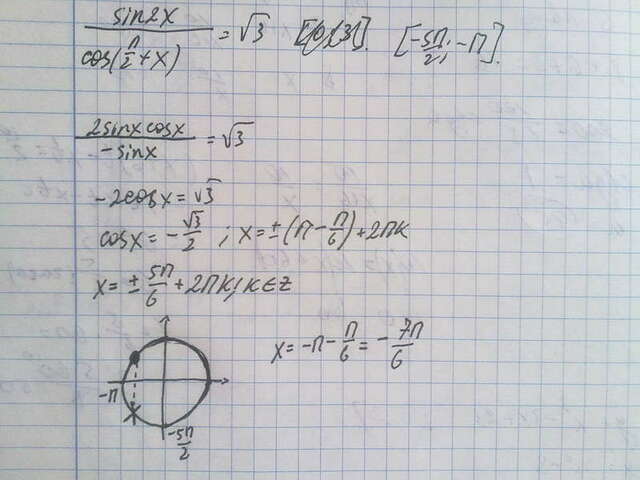 sin2x / cos(π/2 + x) = √3 [-5π/2; -π].
2sinxcosx / -sinx = √3
-2cosx = √3
cosx = -√3/2 ; x = ±(π - π/6) + 2πk
x = ± 5π/6 + 2πk; k∈z
x = -π - π/6 = -7π/6
-π
-5π/2